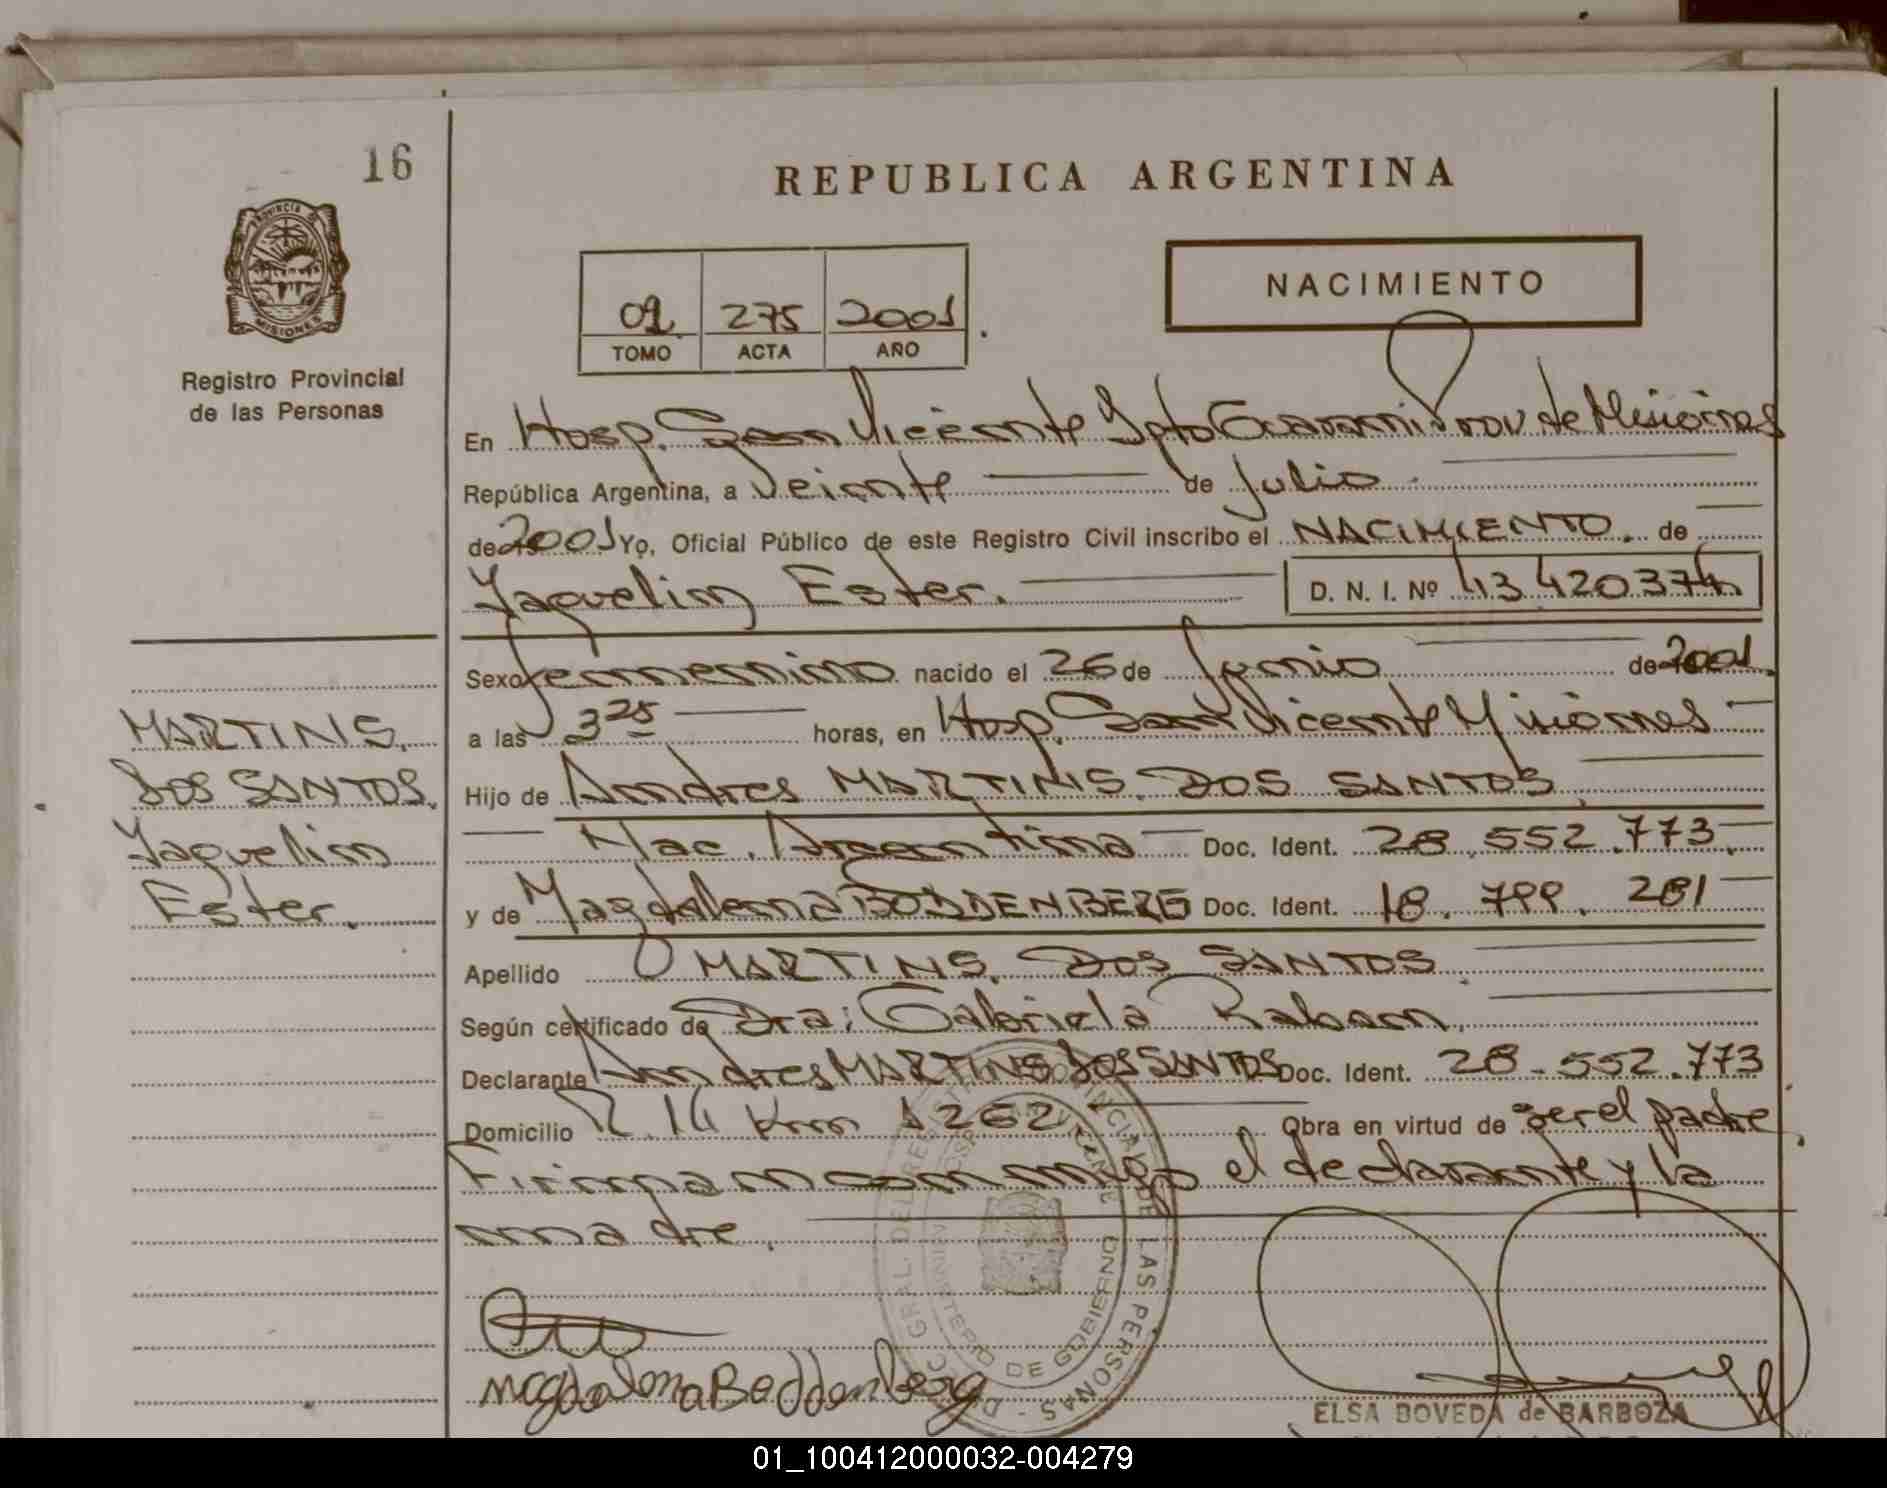 16
REPUBLICA ARGENTINA
PROVINCIA DE
MISIONES
Registro Provincial
de las Personas
01 275 2001
TOMO ACTA AÑO
NACIMIENTO
En Hosp. San Vicente Dpto Guarani Prov de Misiones
República Argentina, a Veinte de Julio
de 2001 Yo, Oficial Público de este Registro Civil inscribo el NACIMIENTO. de
Yaquelin Ester. D. N. I. Nº 43 420374
Sexo femenino nacido el 26 de Junio de 2001.
a las 3 25 horas, en Hosp. San Vicente Misiones
Hijo de Andres MARTINS. DOS SANTOS.
Nac. Argentina Doc. Ident. 28.552.773.
y de Magdalena BODDENBERG Doc. Ident. 18.799.281
Apellido MARTINS. DOS SANTOS.
Según certificado de Dra: Gabriela
Declarante Andres MARTINS DOS SANTOS Doc. Ident. 28-552.773
Domicilio R. 14 Km 1262 Obra en virtud de ser el padre.
Firman conmigo el declarante y la
madre.
MARTINS.
DOS SANTOS.
Yaquelin
Ester.
Magdalena Boddenberg
LAS PERSONAS
DE GOBIERNO
ELSA BOVEDA de BARBOZA
01_100412000032-004279